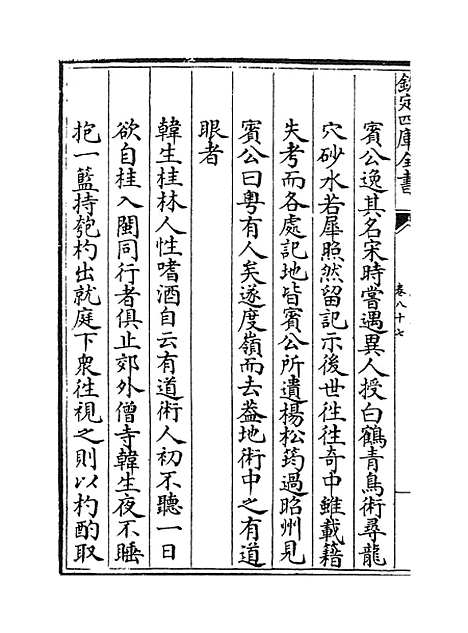 欽定四庫全書
卷八十七
賓公逸其名宋時嘗遇異人授白鶴青鳥術尋龍
穴砂水若犀照然留記示後世徃徃奇中雖載籍
失考而各處記地皆賓公所遺楊松筠過昭州見
賓公曰粤有人矣遂度嶺而去葢地術中之有道
眼者
韓生桂林人性嗜酒自云有道術人初不聽一日
欲自桂入閩同行者俱止郊外僧寺韓生夜不睡
抱一籃持匏杓出就庭下衆徃視之則以杓酌取